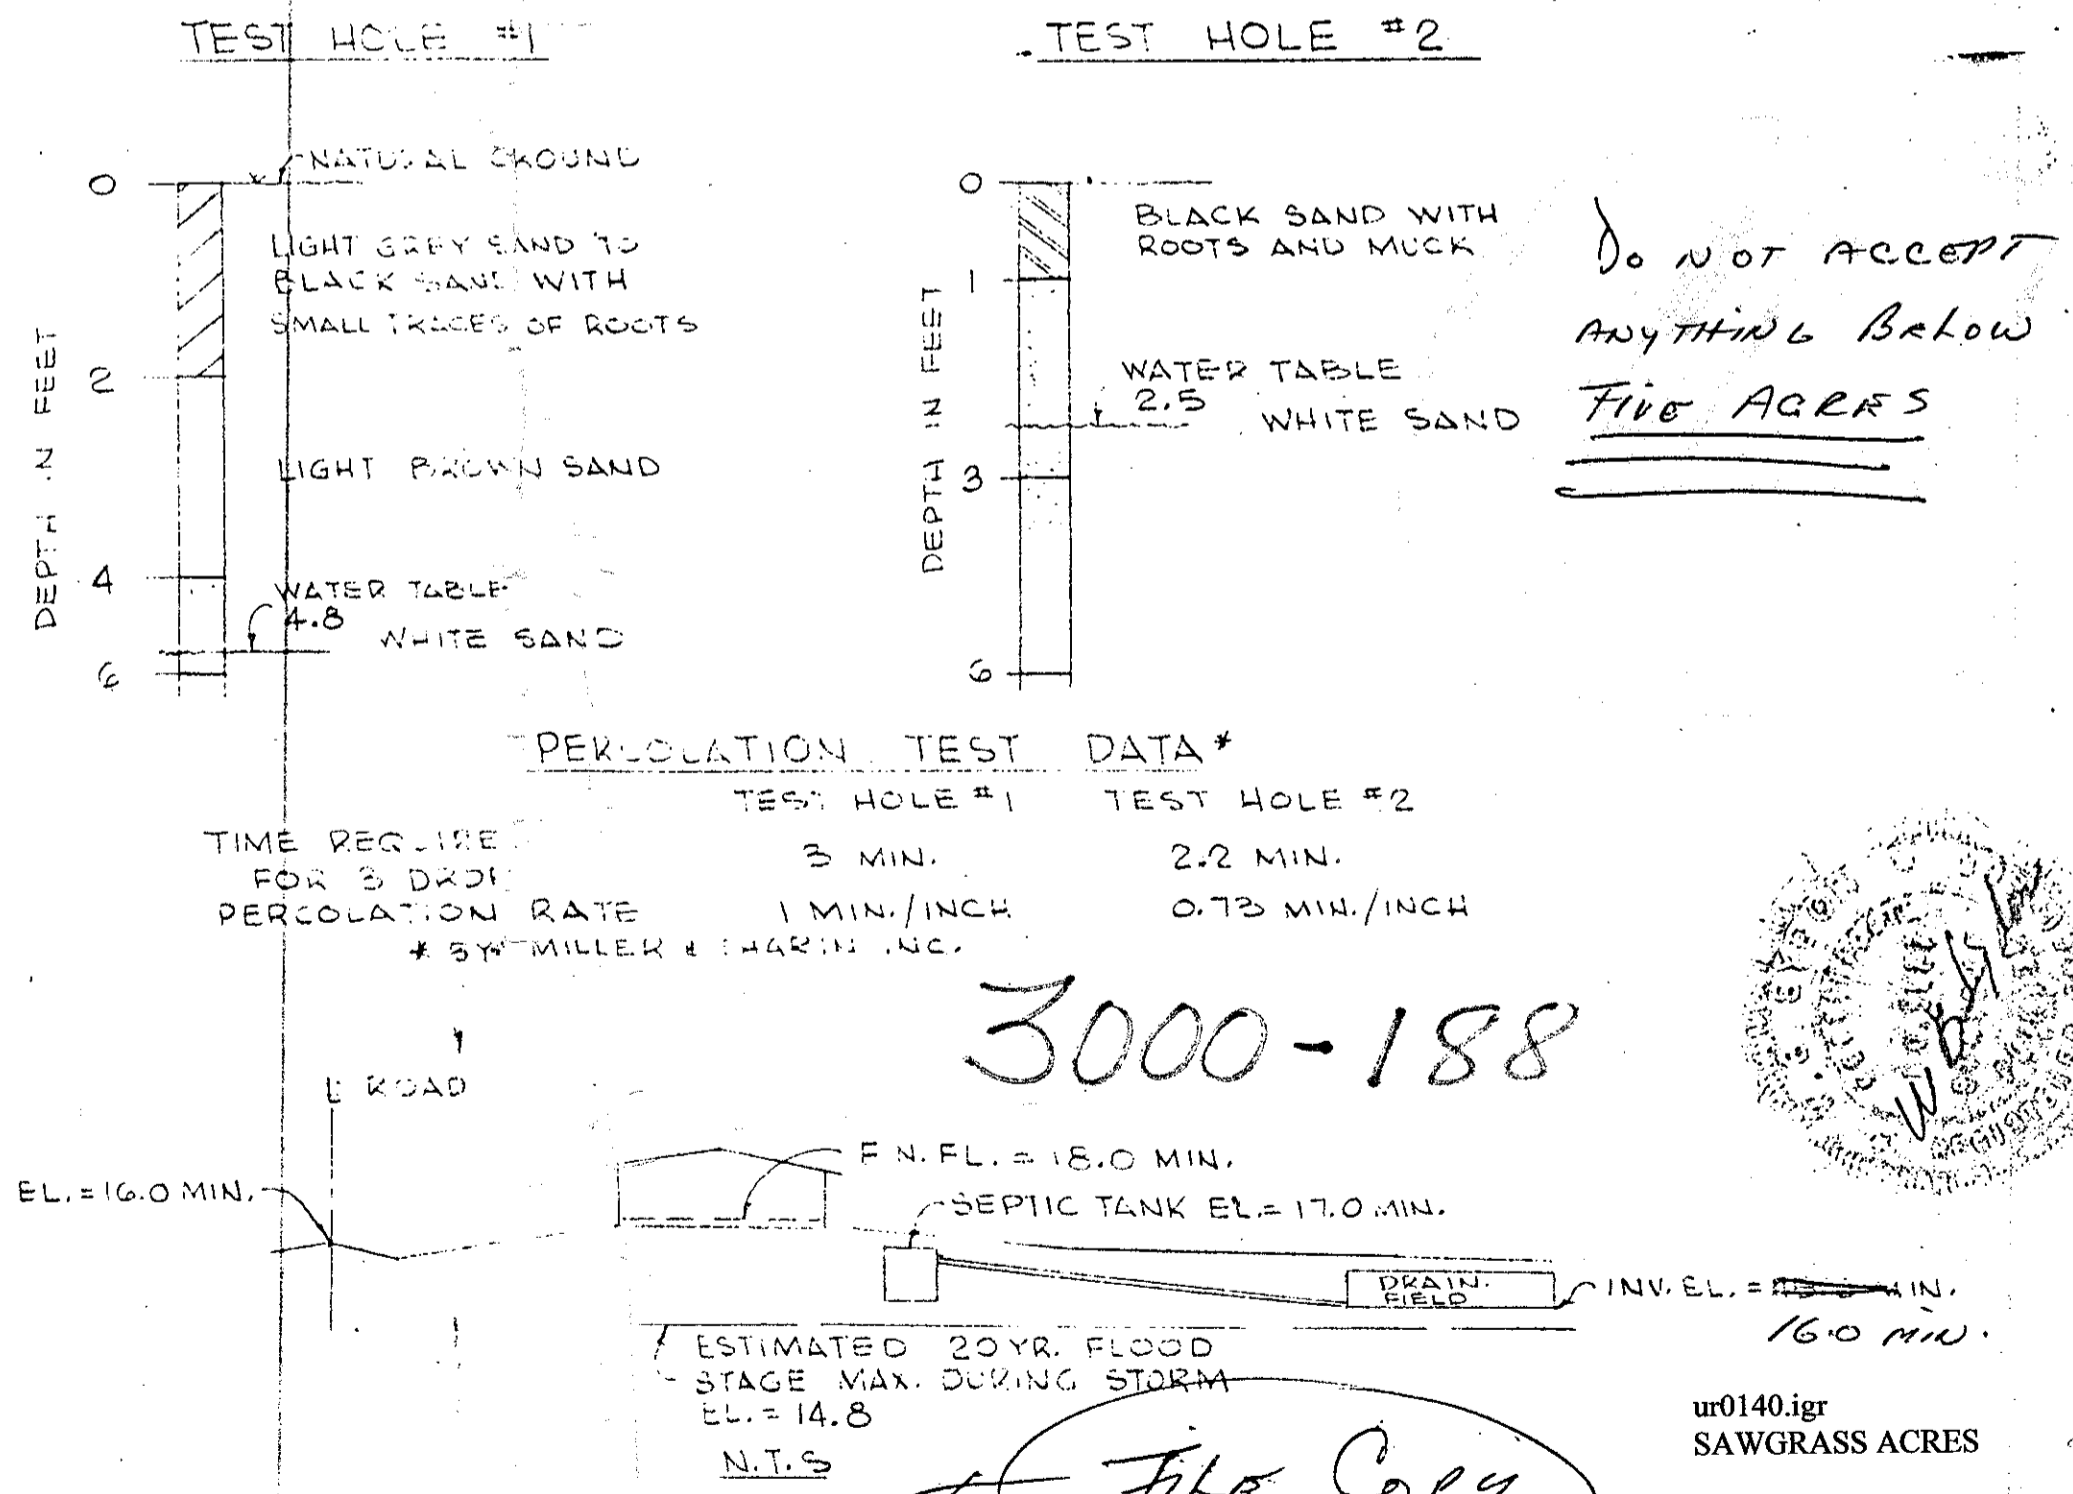 TEST HOLE #1
TEST HOLE #2
NATURAL GROUND
0
LIGHT GREY SAND TO
BLACK SAND WITH
SMALL TRACES OF ROOTS
2
LIGHT BROWN SAND
4
WATER TABLE
4.8
WHITE SAND
6
DEPTH IN FEET
0
BLACK SAND WITH
ROOTS AND MUCK
1
WATER TABLE
2.5
WHITE SAND
3
6
DEPTH IN FEET
Do NOT ACCEPT
ANYTHING BELOW
FIVE ACRES
PERCOLATION TEST DATA*
TEST HOLE #1 TEST HOLE #2
TIME REQUIRE
FOR 3 DROP
3 MIN. 2.2 MIN.
PERCOLATION RATE 1 MIN./INCH 0.73 MIN./INCH
* BY MILLER & INC.
3000-188
ROAD
EL. = 16.0 MIN.
FIN. FL. = 18.0 MIN.
SEPTIC TANK EL. = 17.0 MIN.
DRAIN-
FIELD
INV. EL. = MIN.
16.0 MIN.
ESTIMATED 20 YR. FLOOD
STAGE MAX. DURING STORM
EL. = 14.8
N.T.S
FILE COPY
ur0140.igr
SAWGRASS ACRES